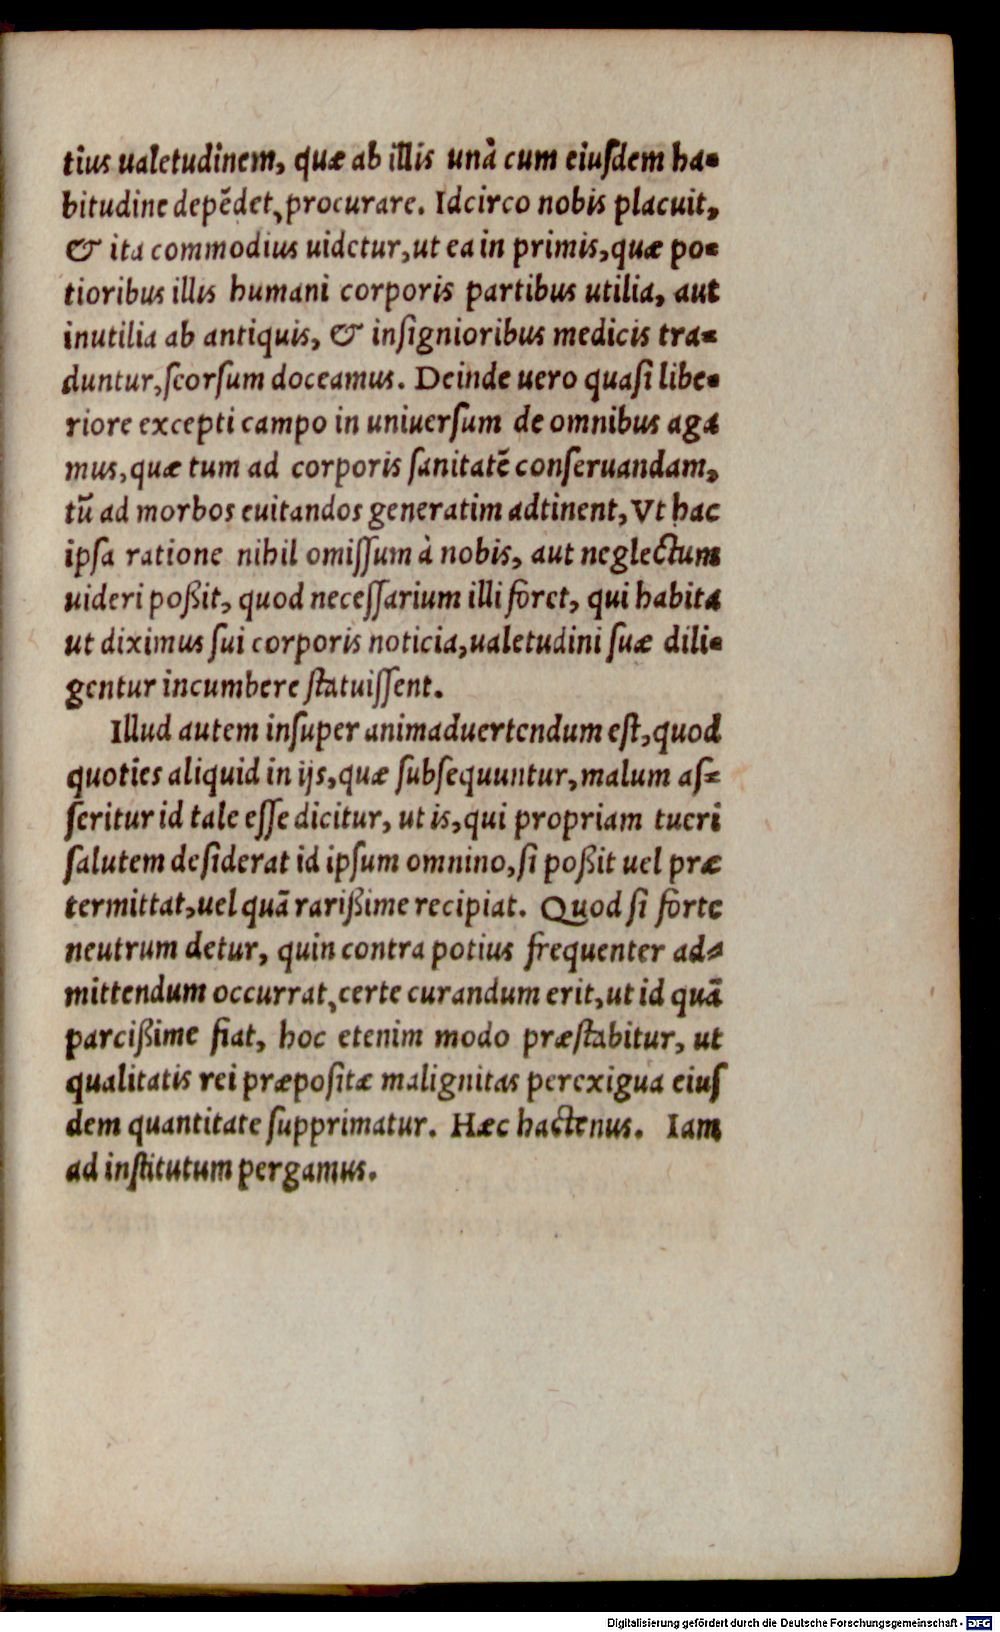 tius ualetudinem, quæ ab illis unà cum eiuſdem ha-
bitudine depēdet, procurare. Idcirco nobis placuit,
& ita commodius uidetur, ut ea in primis, quæ po-
tioribus illis humani corporis partibus utilia, aut
inutilia ab antiquis, & inſignioribus medicis tra-
duntur, ſeorſum doceamus. Deinde uero quaſi libe-
riore excepti campo in uniuerſum de omnibus aga
mus, quæ tum ad corporis ſanitatē conſeruandam,
tū ad morbos euitandos generatim adtinent, Vt hac
ipſa ratione nihil omiſſum à nobis, aut neglectum
uideri poßit, quod neceſſarium illi foret, qui habita
ut diximus ſui corporis noticia, ualetudini ſuæ dili-
gentur incumbere ſtatuiſſent.
Illud autem inſuper animaduertendum eſt, quod
quoties aliquid in ijs, quæ ſubſequuntur, malum aſ-
ſeritur id tale eſſe dicitur, ut is, qui propriam tueri
ſalutem deſiderat id ipſum omnino, ſi poßit uel præ
termittat, uel quā rarißime recipiat. Quod ſi forte
neutrum detur, quin contra potius frequenter ad-
mittendum occurrat, certe curandum erit, ut id quā
parcißime fiat, hoc etenim modo præſtabitur, ut
qualitatis rei præpoſitæ malignitas perexigua eiuſ
dem quantitate ſupprimatur. Hæc hactenus. Iam
ad inſtitutum pergamus.
Digitalisierung gefördert durch die Deutsche Forschungsgemeinschaft - DFG